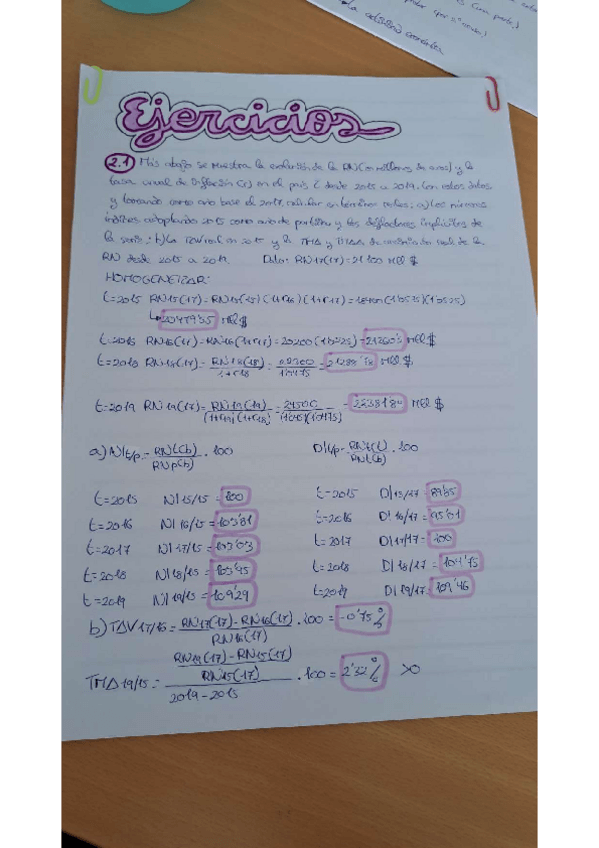 La actividad económica
Ejercicios
2.1 Más abajo se muestra la evolución de la RN (en millones de euros) y la
tasa anual de inflación (r) en el país Z desde 2015 a 2019. Con estos datos
y tomando como año base el 2017, calcular en términos reales: a) Los números
índices adoptando 2015 como año de partida y los deflactores implícitos de
la serie; b) La TΔV real en 2017 y la TMΔ de la
RN desde 2015 a 2019. Dato: RN17(17) = 21100 Mill $
HOMOGENEIZAR:
t=2015 RN15(17) = RN15(15) (1+r16) (1+r17) = 18400 (1'0525)(1'0525)
↳ 20479'35 Mill $
t=2016 RN16(17) = RN16(1+r17) = 20200 (1'0525) = 21260'5 Mill $
t=2018 RN18(17) = RN18(18) / 1+r18 = 22300 / 1'0475 = 21288'78 Mill $
t=2019 RN19(17) = RN19(19) / (1+r19)(1+r18) = 24500 / (1'045)(1'0475) = 22381'84 Mill $
a) NI t/p = RNt(b) / RNp(b) · 100 DI t/p = RNt(t) / RNt(b) · 100
t=2015 NI 15/15 = 100 t=2015 DI 15/17 = 89'85
t=2016 NI 16/15 = 103'81 t=2016 DI 16/17 = 95'01
t=2017 NI 17/15 = 103'03 t=2017 DI 17/17 = 100
t=2018 NI 18/15 = 103'95 t=2018 DI 18/17 = 104'75
t=2019 NI 19/15 = 109'29 t=2019 DI 19/17 = 109'46
b) TΔV 17/16 = RN17(17) - RN16(17) / RN16(17) · 100 = -0'75%
TMΔ 19/15 = RN19(17) - RN15(17) / RN15(17) / 2019-2015 · 100 = 2'32% >0